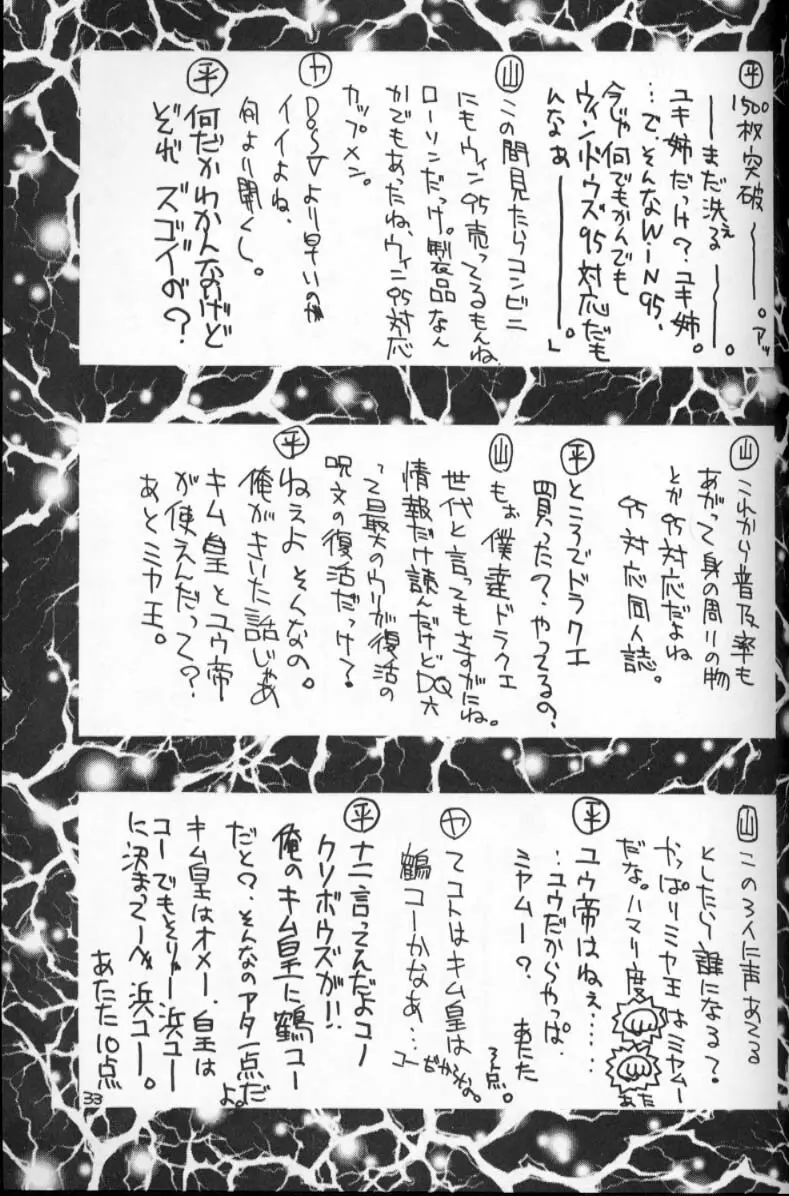 平
1500枚突破〜〜〜。アッ
――まだ洗えぇる――。
ユキ姉だっけ？ユキ姉。
…で、そんなWiN95、
今じゃ何でもかんでも
ウィンドウズ95対応だも
んなぁ―――。」
山
この間見たらコンビニ
にもウィン95売ってるもんね
ローソンだっけ。製品なん
かでもあったね、ウィン95対応
カップメン。
ヤ
DOS/Vより早いのが
イイよね、
何より開くし。
平
何だかわかんないけど
ぞれ ズゴイの？
山
これから普及率も
あがって身の周りの物
とか95対応だよね
95対応同人誌。
平
ところでドラクエ
買ったの？やってるの？
山
もぉ僕達ドラクエ
世代と言ってもさすがにね。
情報だけ読んだけどDQ六
って最大のウリが復活の
呪文の復活だっけ？
平
ねぇよ そんなの。
俺がきいた話じゃあ
キム皇とユウ帝
が使えんだって？
あとミヤ王。
山
この3人に声あてる
としたら誰になる？
やっぱりミヤ王はミヤムー
だな。ハマリ度
あた
平
ユウ帝はねぇ……
…ユウだからやっぱ
ミヤムー？ あたた
3点。
ヤ
てコトはキム皇は
鶴コーかなあ…
コーだからね。
平
ナニ言ってんだよコノ
クソボウズが!!
俺のキム皇に鶴コー
だと？そんなのアタ一点だ
よ。
キム皇はオメー、皇は
コーでもそりゃー浜コー
に決まってーべ 浜コー。
あたた10点
33